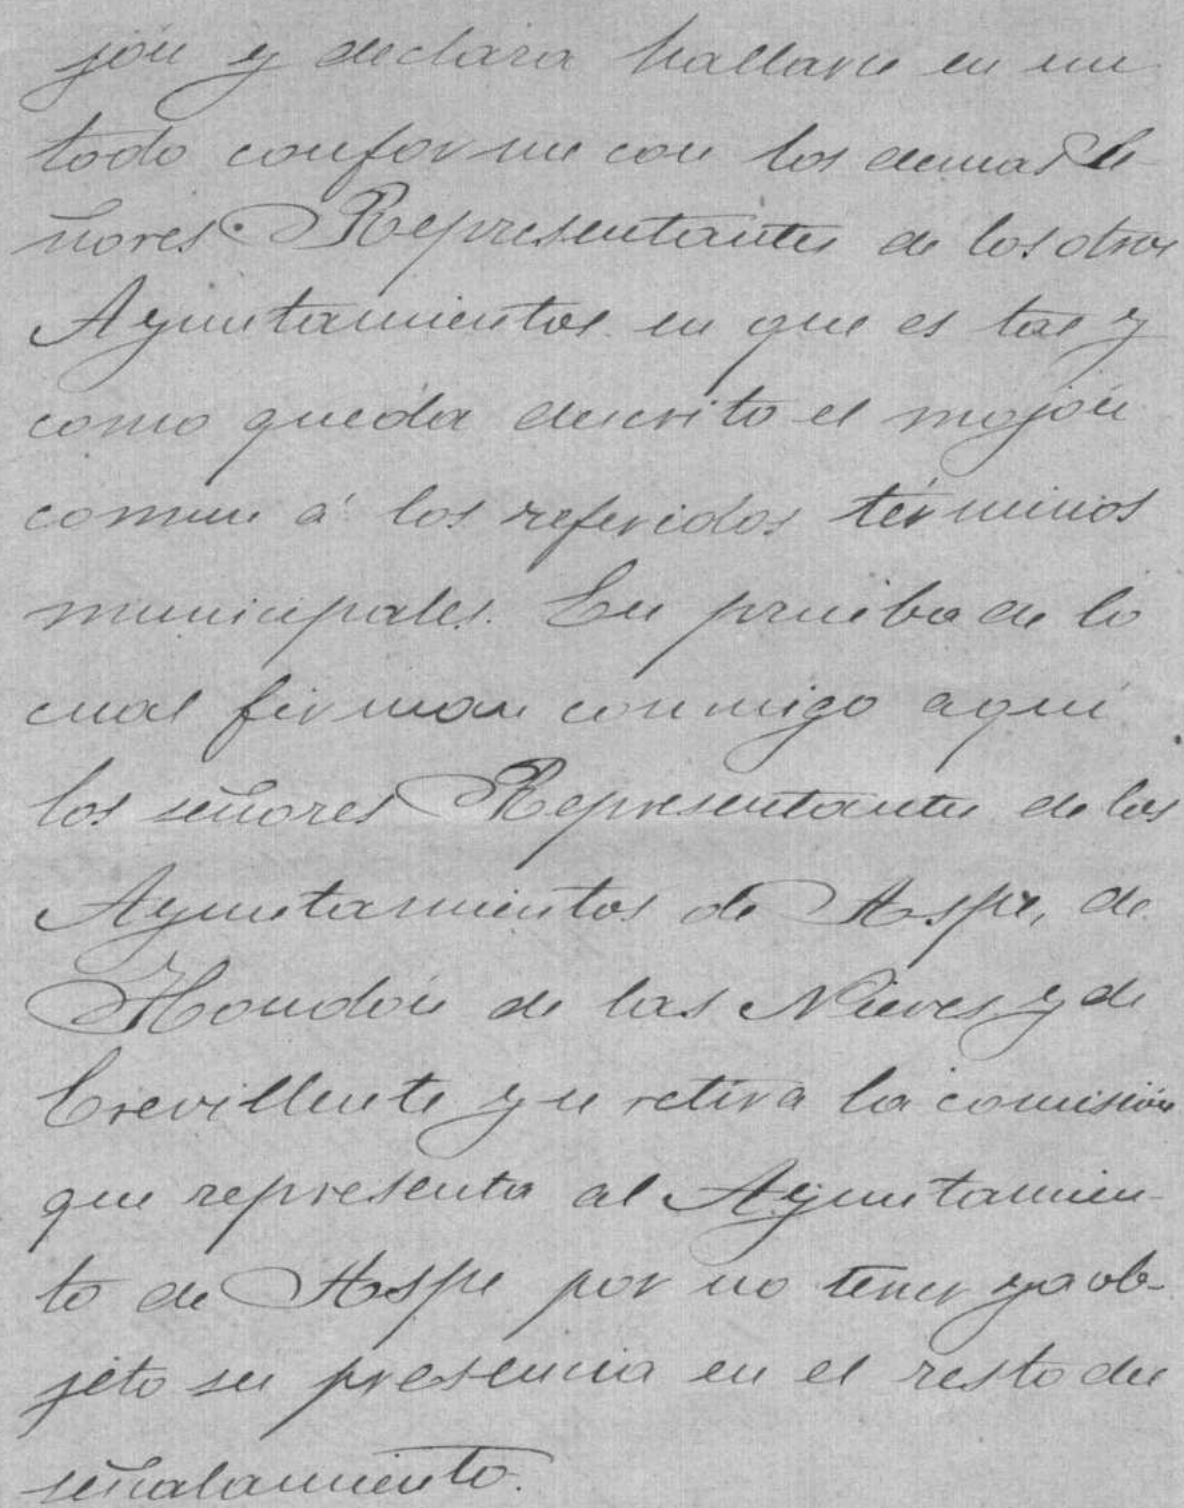 jón y declara hallarse en un
todo conforme con los demas Se-
ñores Representantes de los otros
Ayuntamientos en que es tal y
como queda descrito el mojón
comun á los referidos términos
municipales. En prueba de lo
cual firman conmigo aquí
los señores Representantes de los
Ayuntamientos de Aspe, de
Hondón de las Nieves y de
Crevillente y se retira la comisión
que representa al Ayuntamien-
to de Aspe por no tener ya ob-
jeto su presencia en el resto del
señalamiento.